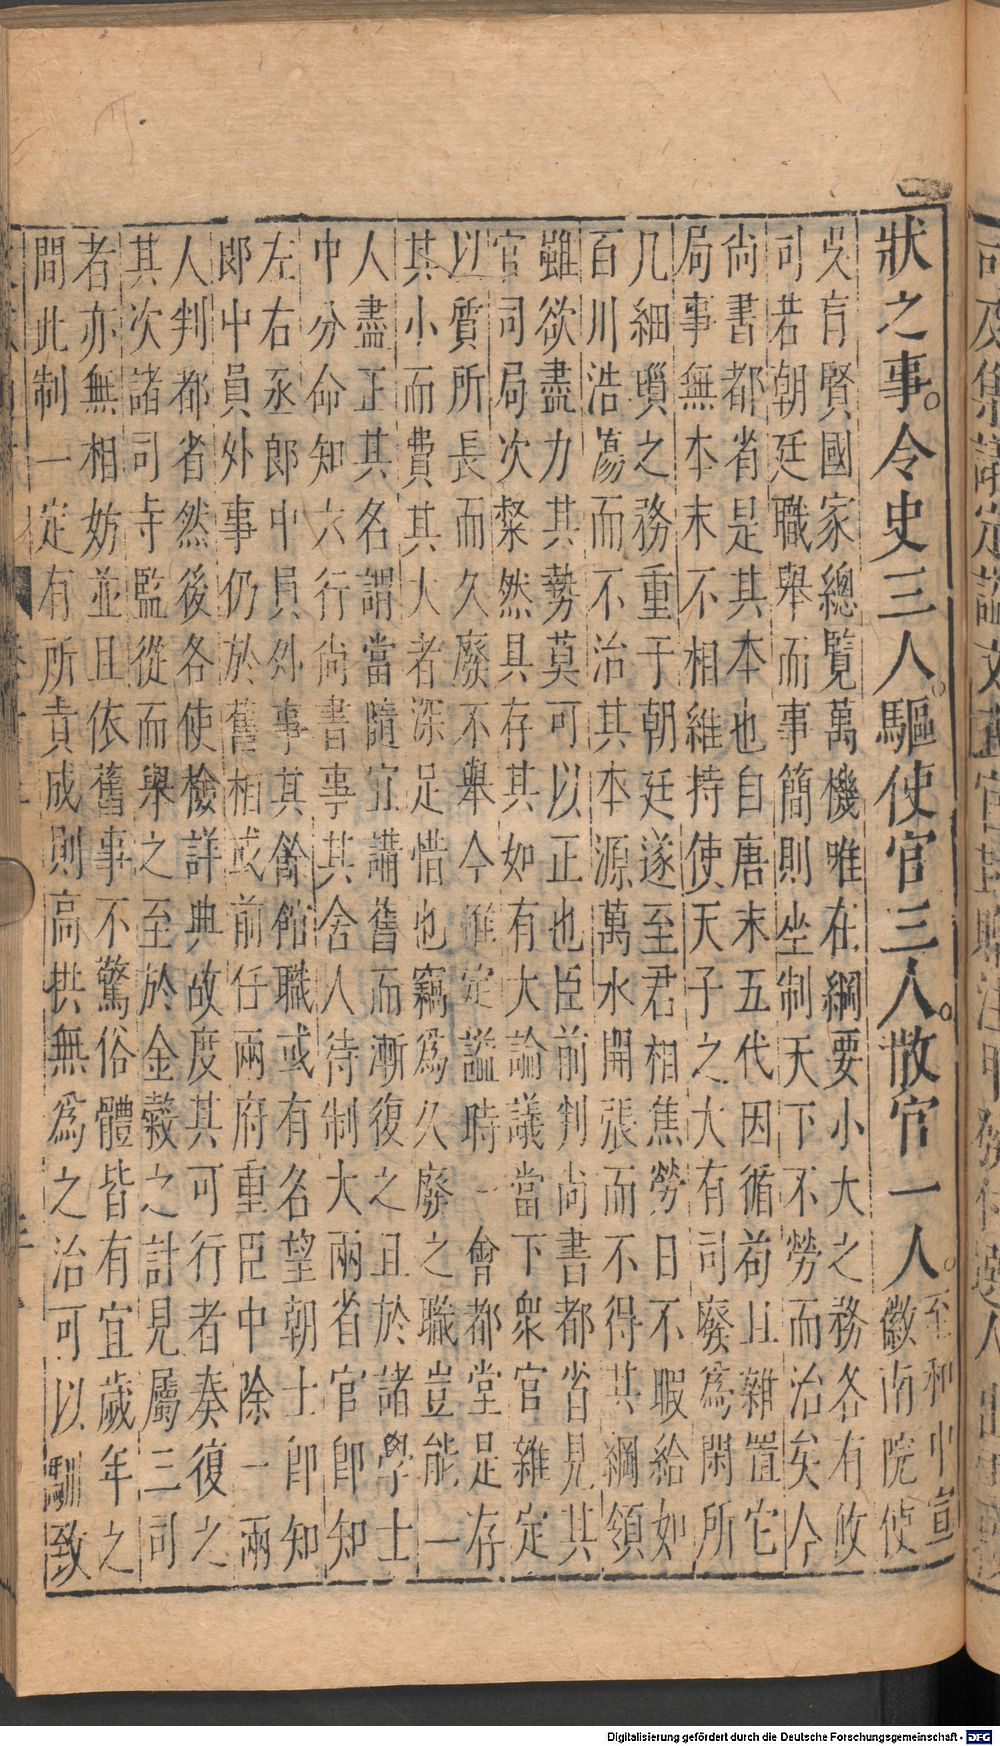 狀之事。令史三人。驅使官三人。散官一人。至和中宣
徽南院使
吳育賢國家總覽萬機唯在綱要小大之務各有攸
司若朝廷職舉而事簡則坐制天下不勞而治矣今
尚書都省是其本也自唐末五代因循苟且雜置它
局事無本末不相維持使天子之大有司廢為閑所
几細瑣之務重于朝廷遂至君相焦勞日不暇給如
百川浩蕩而不治其本源萬水開張而不得其綱領
雖欲盡力其勢莫可以正也臣前判尚書都省見其
官司局次粲然具存其如有大論議當下衆官雜定
以質所長而久廢不舉今雖定謚時一會都堂是存
其小而費其大者深足惜也竊爲久廢之職豈能一
人盡正其名謂當隨宜講舊而漸復之且於諸學士
中分命知六行尚書事其舍人待制大兩省官卽知
左右丞郎中員外事其餘館職或有名望朝士卽知
郎中員外事仍於舊相或前任兩府重臣中除一兩
人判都者然後各使檢詳典故度其可行者奏復之
其次諸司寺監從而舉之至於金糓之計見屬三司
者亦無相妨並且依舊事不驚俗體皆有宜歲年之
間此制一定有所責成則高拱無爲之治可以馴致
Digitalisierung gefördert durch die Deutsche Forschungsgemeinschaft - DFG